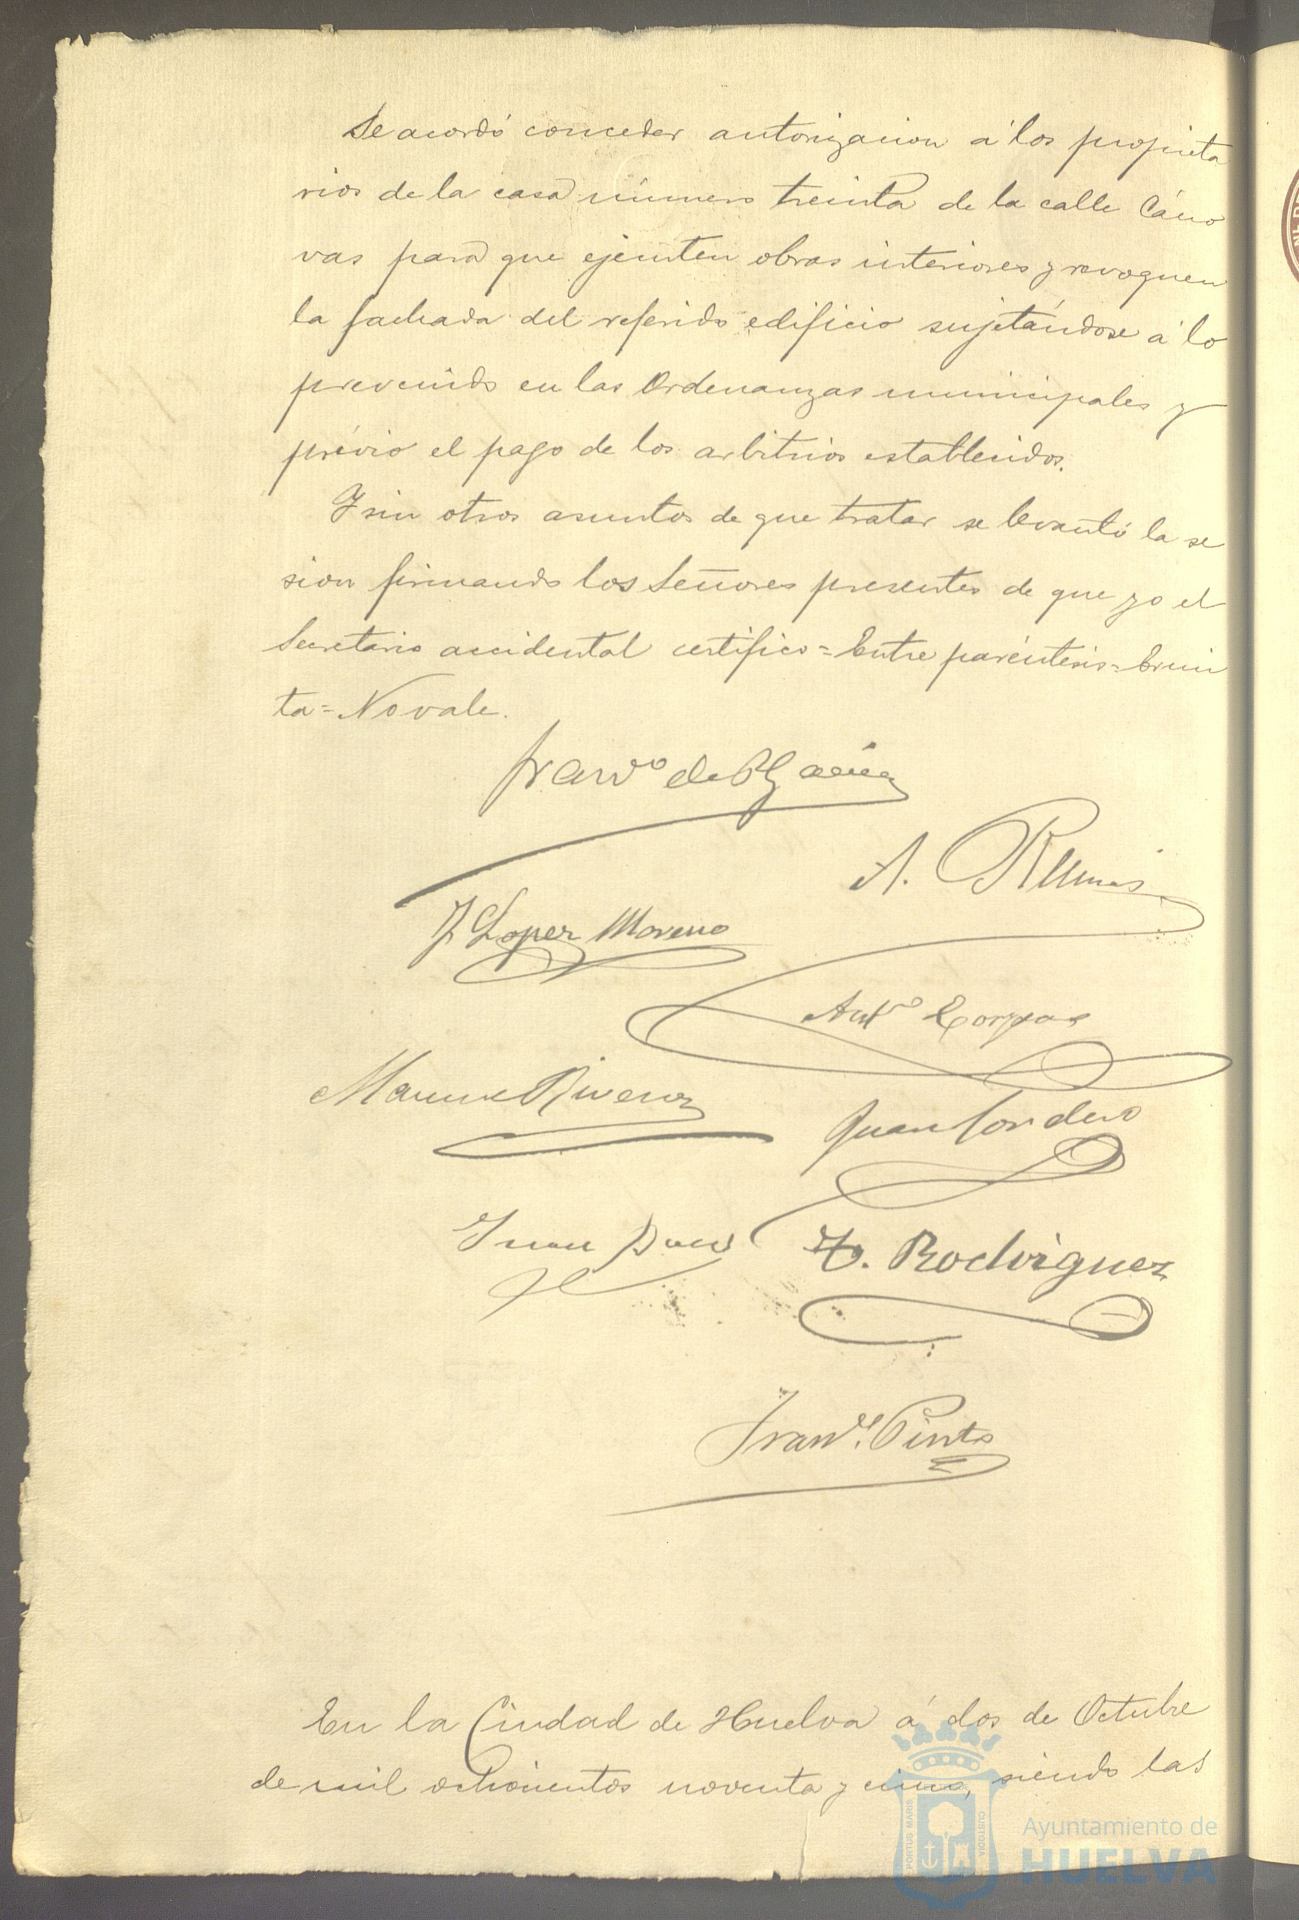 Se acordó conceder autorizacion á los propieta
rios de la casa número treinta de la calle Cáno
vas para que ejecuten obras interiores y revoquen
la fachada del referido edificio sujetándose á lo
prevenido en las Ordenanzas municipales y
prévio el pago de los arbitrios establecidos.
Y sin otros asuntos de que tratar se levantó la se
sion firmando los Señores presentes de que yo el
Secretario accidental certifico = Entre paréntesis = Ermi
ta = No vale.
Franco de P García
A.
J Lopez Moreno
Anto Corpas
Manuel Rivera
Juan Cordero
Juan
F. Rodriguez
Franco Pinto
En la Ciudad de Huelva á dos de Octubre
de mil ochocientos noventa y cinco, siendo las
PORTUS MARIS
CUSTODIA
Ayuntamiento de
HUELVA